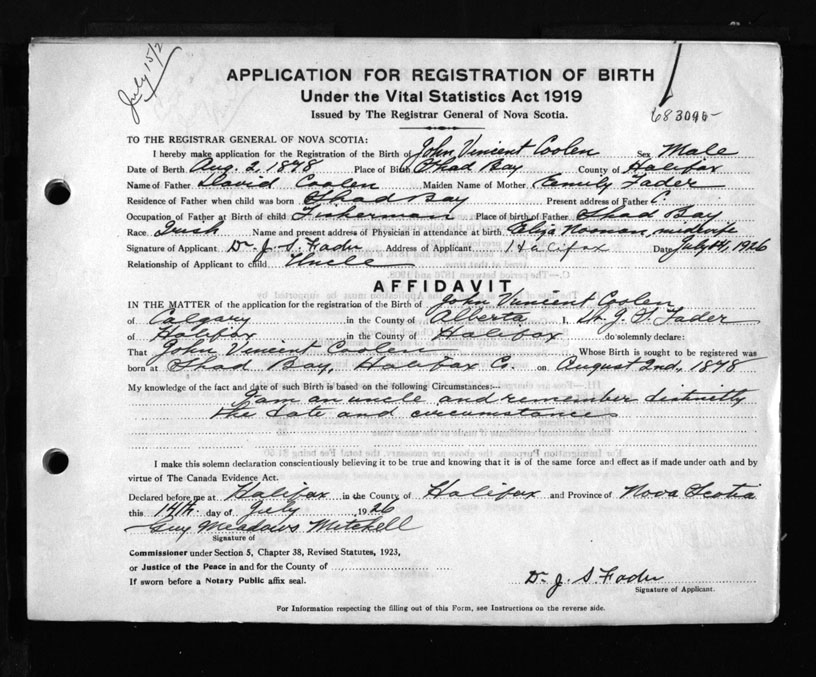 July 15/2
APPLICATION FOR REGISTRATION OF BIRTH
Under the Vital Statistics Act 1919
Issued by The Registrar General of Nova Scotia.
683095-
TO THE REGISTRAR GENERAL OF NOVA SCOTIA:
I hereby make application for the Registration of the Birth of John Vincent Coolen Sex Male
Date of Birth Aug. 2, 1878 Place of Birth Shad Bay County of Halifax
Name of Father David Coolen Maiden Name of Mother Emily Fader
Residence of Father when child was born Shad Bay Present address of Father
Occupation of Father at Birth of child Fisherman Place of birth of Father Shad Bay
Race Irish Name and present address of Physician in attendance at birth Eliza Noonan, midwife
Signature of Applicant Dr. J. S. Fader Address of Applicant Halifax Date July 14, 1926
Relationship of Applicant to child Uncle
AFFIDAVIT
IN THE MATTER of the application for the registration of the Birth of John Vincent Coolen
of Calgary in the County of Alberta I, Dr. J. S. Fader
of Halifax in the County of Halifax do solemnly declare:
That John Vincent Coolen Whose Birth is sought to be registered was
born at Shad Bay, Halifax Co. on August 2nd, 1878
My knowledge of the fact and date of such Birth is based on the following Circumstances:—
I am an uncle and remember distinctly
the date and circumstances
I make this solemn declaration conscientiously believing it to be true and knowing that it is of the same force and effect as if made under oath and by
virtue of The Canada Evidence Act.
Declared before me at Halifax in the County of Halifax and Province of Nova Scotia
this 14th day of July 1926
Guy Meadows Mitchell
Signature of
Commissioner under Section 5, Chapter 38, Revised Statutes, 1923,
or Justice of the Peace in and for the County of
If sworn before a Notary Public affix seal.
Dr. J. S. Fader
Signature of Applicant.
For Information respecting the filling out of this Form, see Instructions on the reverse side.